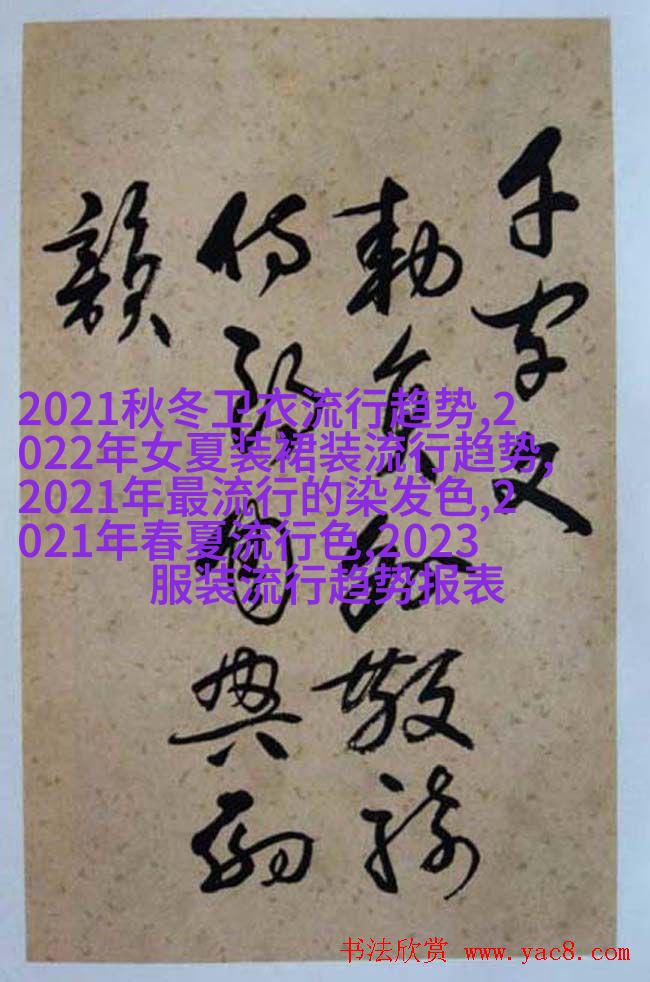 千字文
勅員外散騎
侍郎周興嗣
韻
2021秋冬卫衣流行趋势,2
022年女夏装裙装流行趋势,
2021年最流行的染发色,2
021年春夏流行色,2023
服装流行趋势报表
书法欣赏 www.yac8.com